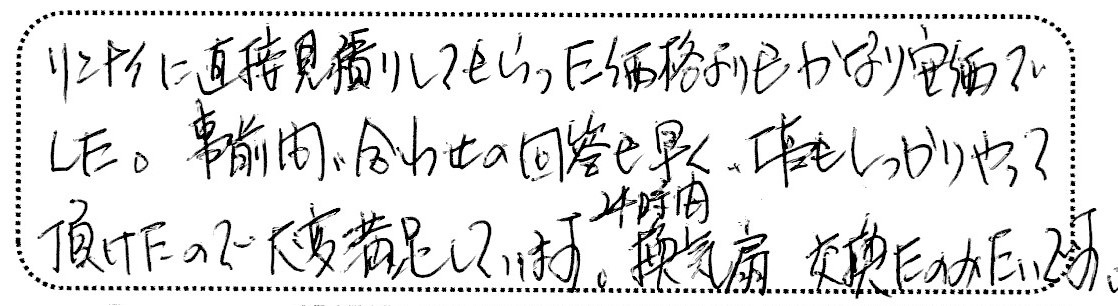 リンナイに直接見積りしてもらった価格よりもかなり安価で
した。事前問い合わせの回答も早く、工事もしっかりやって
頂けたので大変満足しています。24時間換気扇 交換たのみたいです。